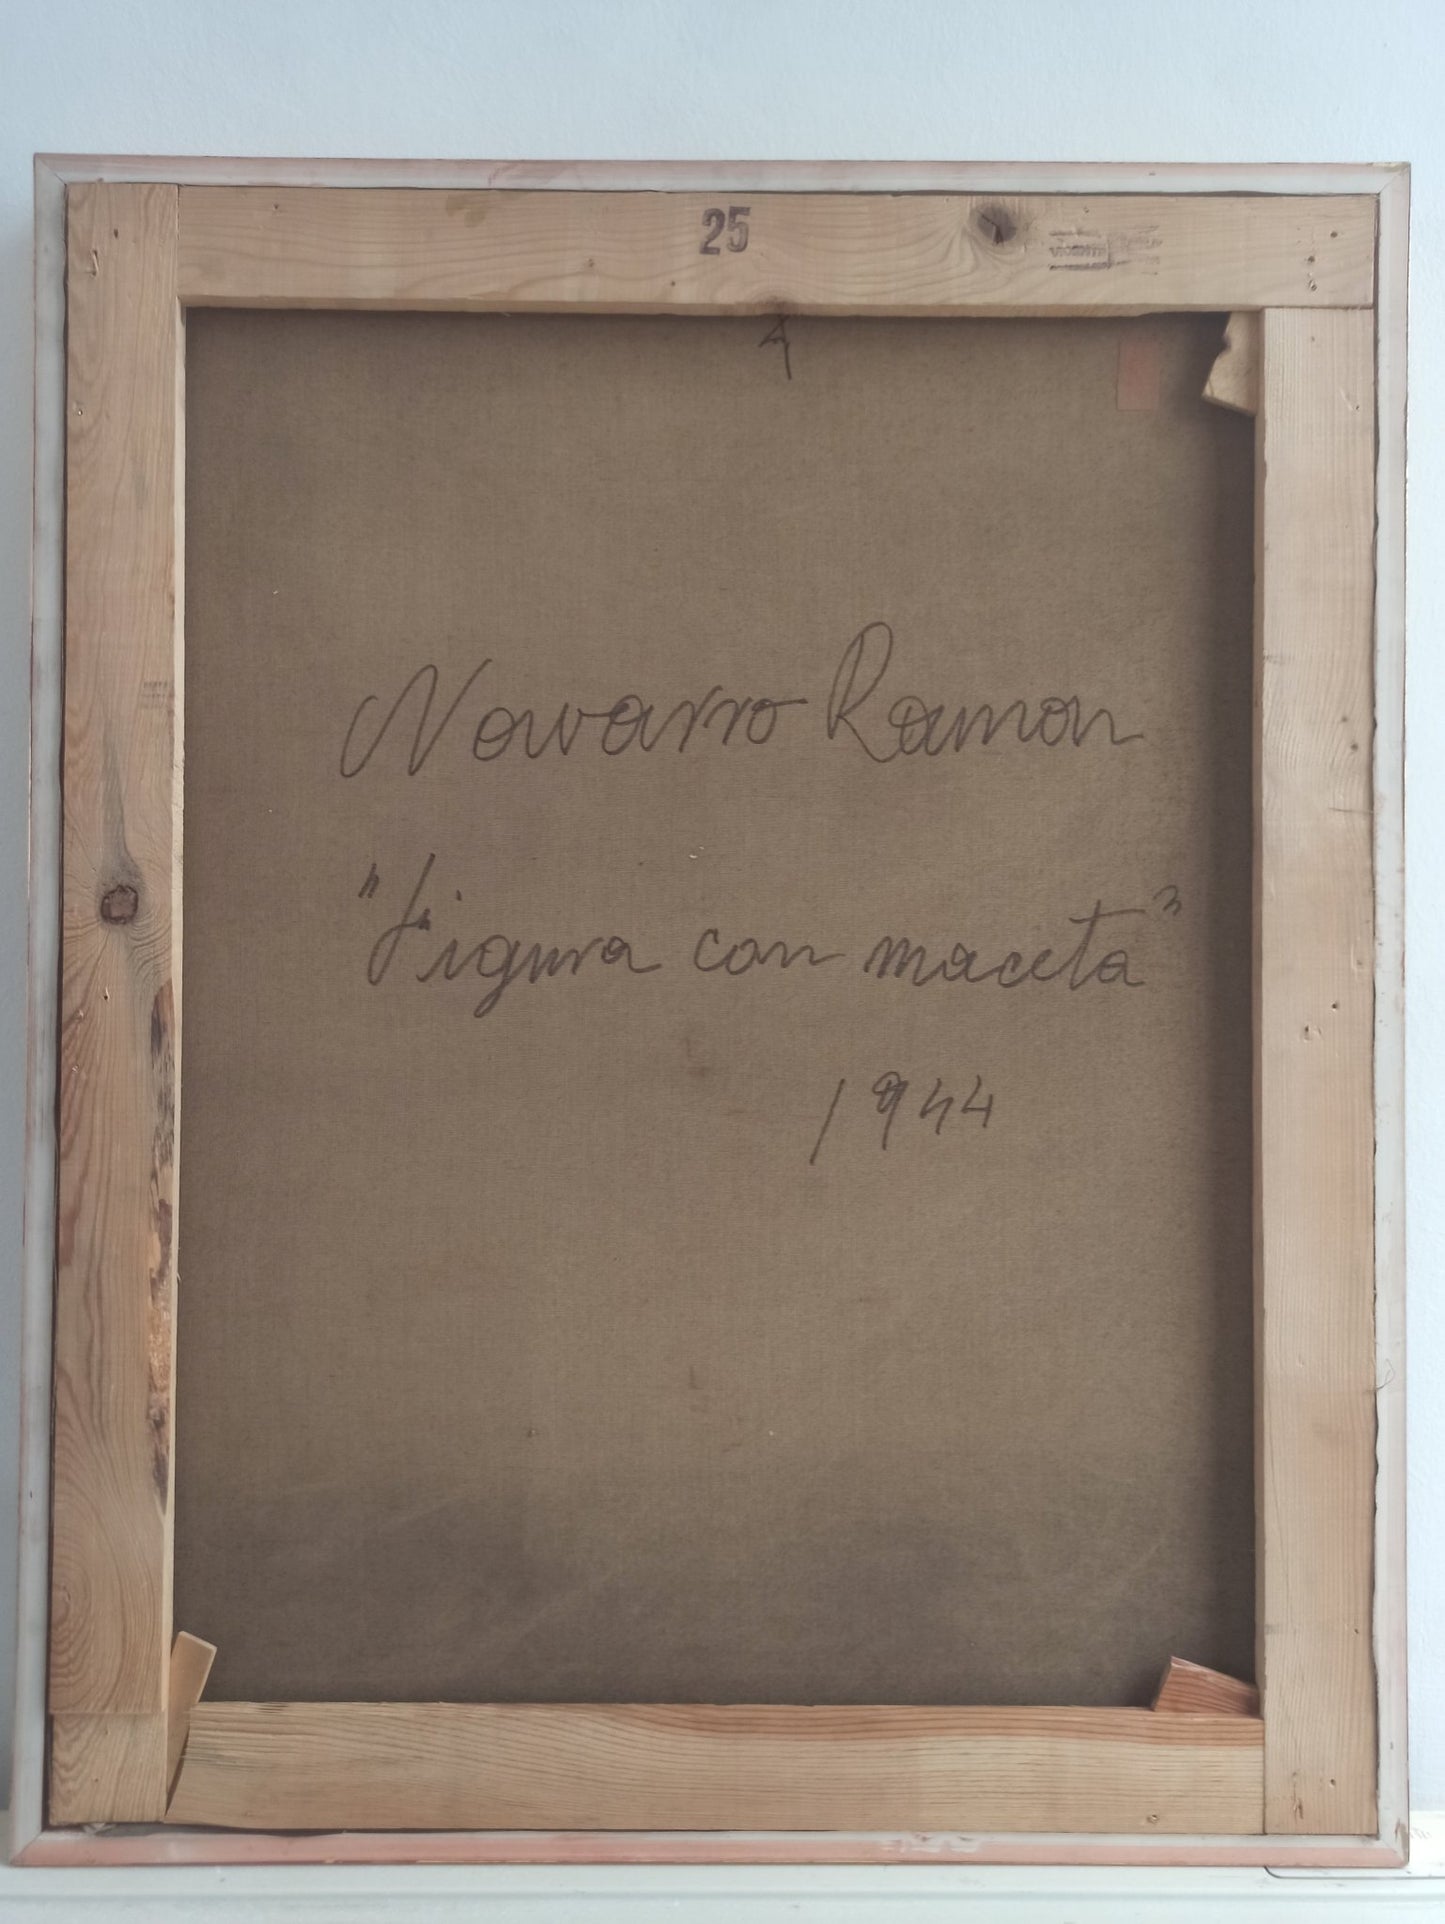 25
VICENTE
Navarro Ramon
"Figura con maceta"
1944